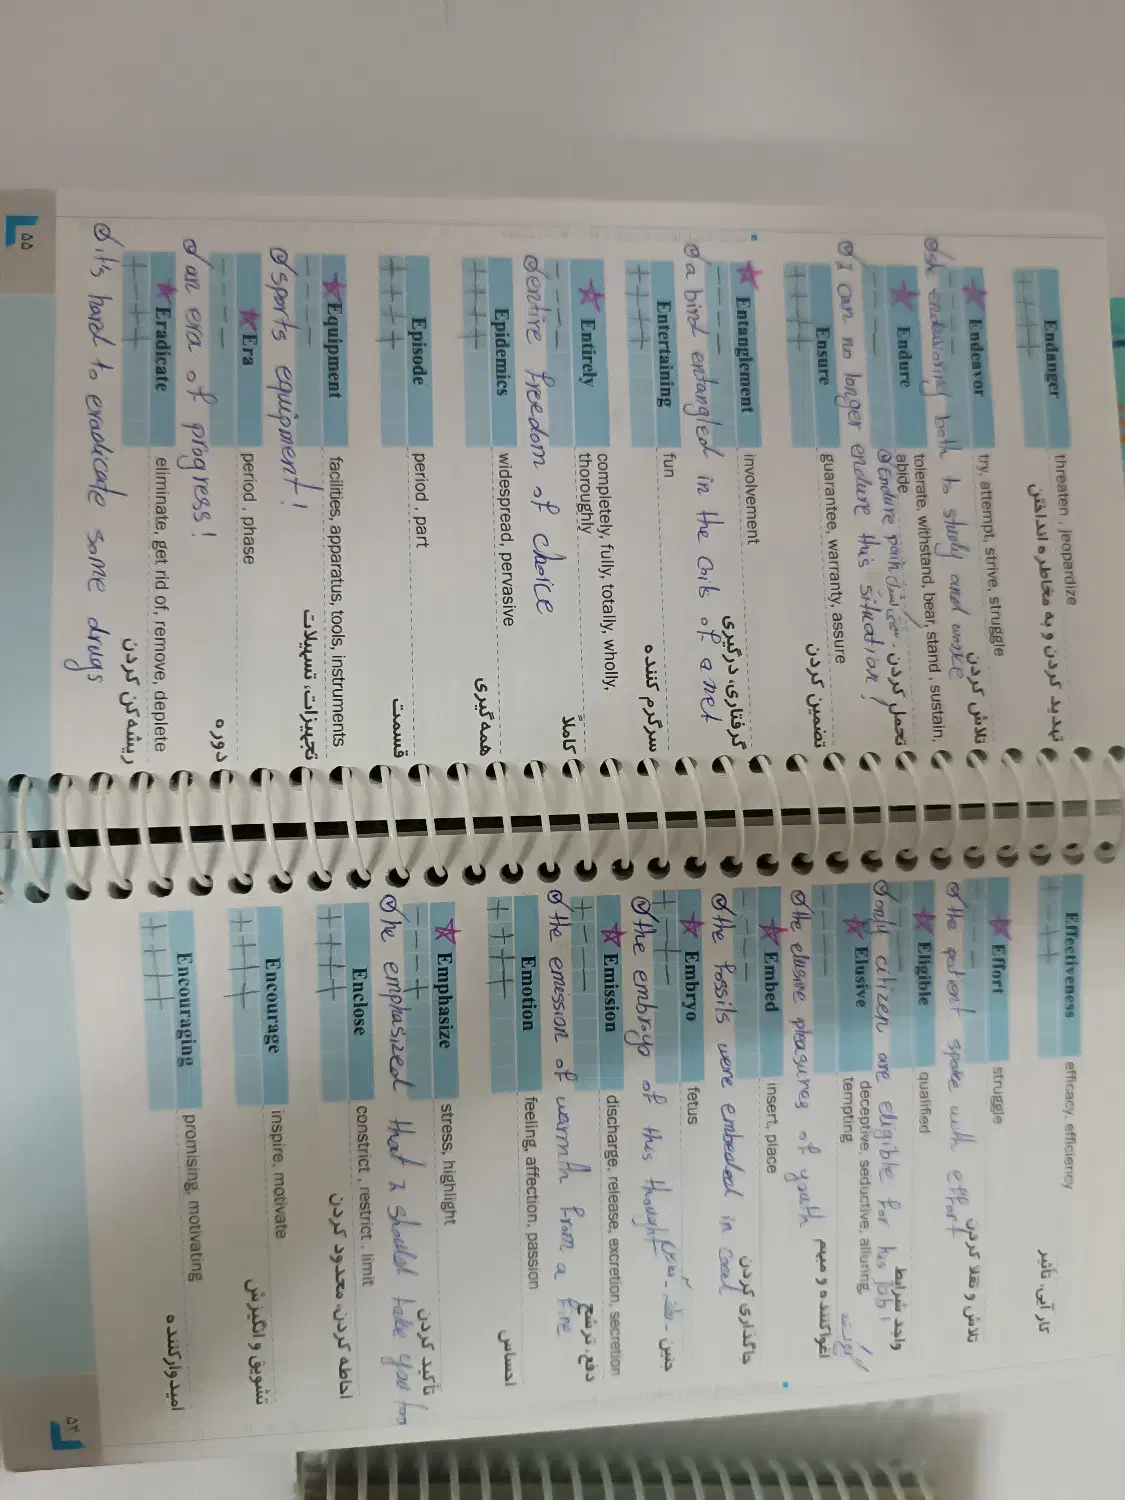 Endanger
threaten , jeopardize
تهدید کردن و به مخاطره انداختن
Endeavor
try, attempt, strive, struggle
تلاش کردن
she endeavoring both to study and worke
Endure
tolerate, withstand, bear, stand , sustain,
abide
تحمل کردن
Endure pain
I can no longer endure this situation!
Ensure
guarantee, warranty, assure
تضمین کردن
Entanglement
involvement
گرفتاری، درگیری
a bird entangled in the coils of a net
Entertaining
fun
سرگرم کننده
Entirely
completely, fully, totally, wholly,
thoroughly
کاملاً
entire freedom of choice
Epidemics
widespread, pervasive
همه گیری
Episode
period , part
قسمت
Equipment
facilities, apparatus, tools, instruments
تجهیزات، تسهیلات
sports equipment!
Era
period , phase
دوره
an era of progress!
Eradicate
eliminate, get rid of, remove, deplete
ریشه کن کردن
it's hard to eradicate some drugs
۵۵
Effectiveness
efficacy, efficiency
کار آیی، تأثیر
Effort
struggle
تلاش و تقلا کردن
the patient spoke with effort
Eligible
qualified
واجد شرایط
only citizen are eligible for his job!
Elusive
deceptive, seductive, alluring,
tempting
اغواکننده و مبهم
the elusive pleasures of youth
Embed
insert, place
جاگذاری کردن
the fossils were embedded in coal
Embryo
fetus
جنین
the embrayo of this though
Emission
discharge, release, excretion, secretion
دفع، ترشح
the emission of warmth from a fire
Emotion
feeling, affection, passion
احساس
Emphasize
stress, highlight
تأکید کردن
he emphasized that I should take you too
Enclose
constrict , restrict , limit
احاطه کردن، محدود کردن
Encourage
inspire, motivate
تشویق و انگیزش
Encouraging
promising, motivating
امیدوارکننده
۵۳